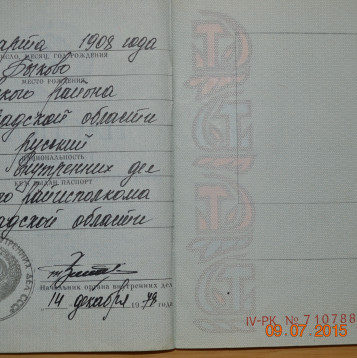 марта 1903 года
ЧИСЛО, МЕСЯЦ, ГОД РОЖДЕНИЯ
Быково
МЕСТО РОЖДЕНИЯ
кого района
адской области
русский
НАЦИОНАЛЬНОСТЬ
внутренних дел
КЕМ ВЫДАН ПАСПОРТ
го райисполкома
адской области
Начальник органа внутренних дел
14 декабря 1978 года
ВНУТРЕННИХ ДЕЛ СССР
IV-РК № 710788
09.07.2015